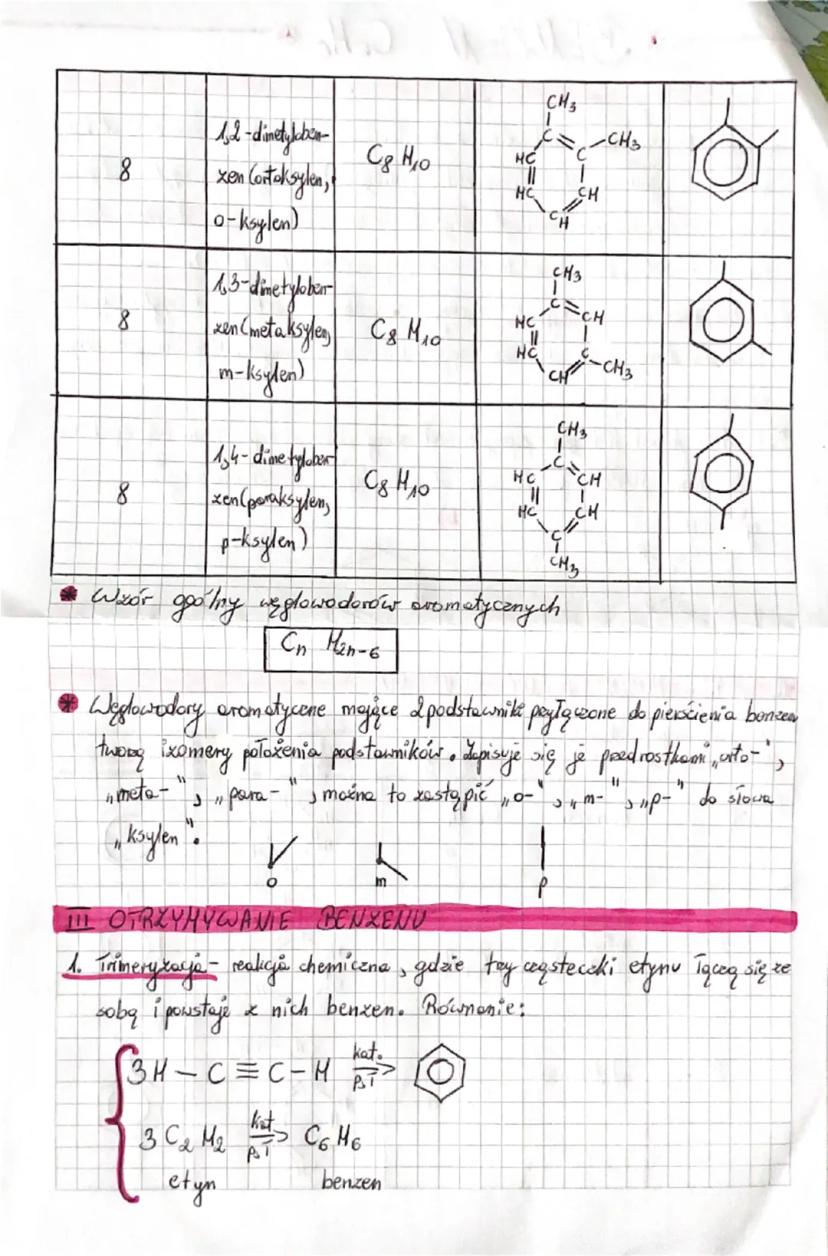 8
1,2-dimetyloben-
zen (ortoksylen,
o-ksylen)
C8 H10
CH3
C
C
CH3
HC
HC
CH
CH
8
1,3-dimetyloben-
zen (metaksylen,
m-ksylen)
C8 H10
CH3
C
CH
HC
HC
C
CH3
CH
8
1,4-dimetyloben-
zen (paraksylen,
p-ksylen)
C8 H10
CH3
C
HC
CH
HC
CH
C
CH3
* Wzór ogólny węglowodorów aromatycznych
Cn H2n-6
* Węglowodory aromatyczne mające 2 podstawniki przyłączone do pierścienia benzenu
tworzą izomery położenia podstawników. Zapisuje się je przedrostkami „orto-",
„meta-", „para-", można to zastąpić „o-", „m-", „p-" do słowa
„ksylen".
o m p
III OTRZYMYWANIE BENZENU
1. Trimeryzacja - reakcja chemiczna, gdzie trzy cząsteczki etynu łączą się ze
sobą i powstaje z nich benzen. Równanie:
3H – C ≡ C – H kat. p,T →
3 C2 H2 kat. p,T → C6 H6
etyn benzen